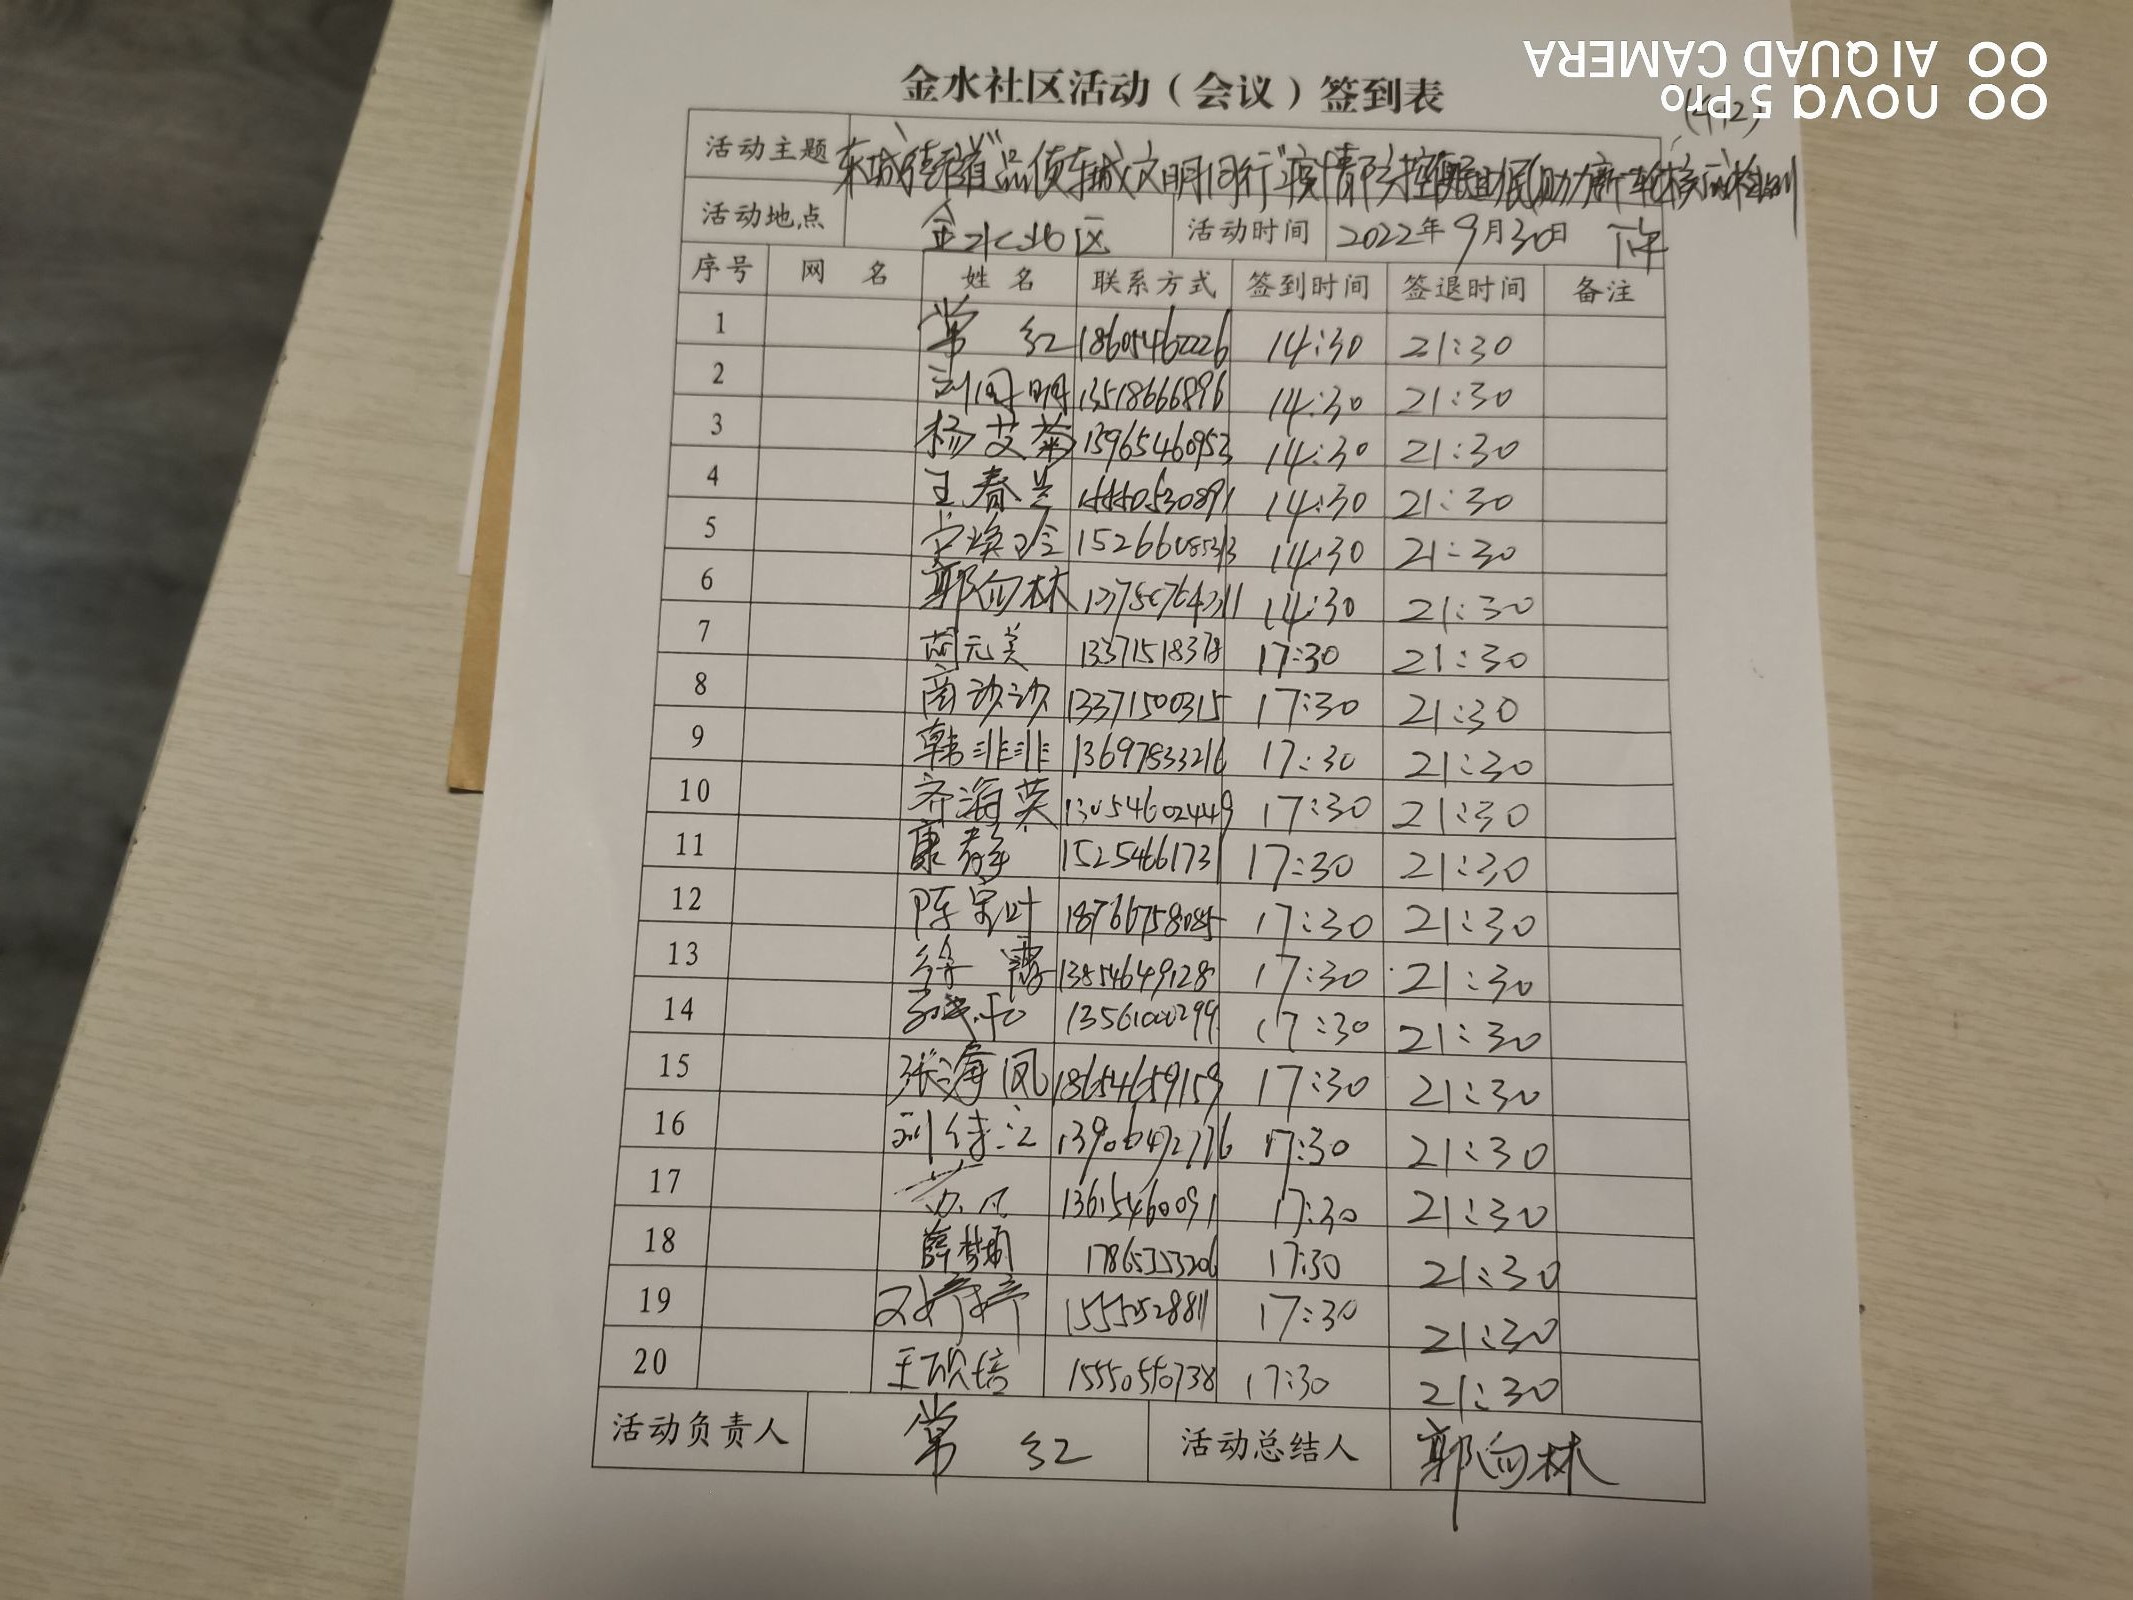 金水社区活动（会议）签到表
活动主题 东城街道"品质东城文明同行"疫情防控
活动地点 金水北区 活动时间 2022年9月30日 下午
序号 网 名 姓 名 联系方式 签到时间 签退时间 备注
1 常 红 18605460226 14:30 21:30
2 刘同明 13518666896 14:30 21:30
3 杨艾菊 13965460953 14:30 21:30
4 王春兰 14:30 21:30
5 14:30 21:30
6 郭向林 14:30 21:30
7 元美 13371518378 17:30 21:30
8 商沙沙 13371500315 17:30 21:30
9 韩非非 13697833216 17:30 21:30
10 齐海英 13054602449 17:30 21:30
11 康静 1525466173 17:30 21:30
12 陈 叶 18766758085 17:30 21:30
13 徐 霞 13854649128 17:30 21:30
14 17:30 21:30
15 张海凤 18654659159 17:30 21:30
16 刘 江 17:30 21:30
17 13615460091 17:30 21:30
18 薛梦 17:30 21:30
19 刘婷婷 17:30 21:30
20 王硕培 15550550738 17:30 21:30
活动负责人 常 红 活动总结人 郭向林
nova 5 Pro
AI QUAD CAMERA